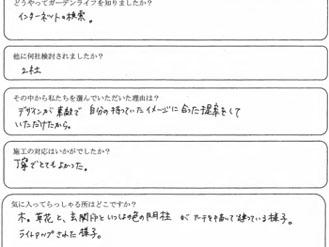 どうやってガーデンライフを知りましたか？
インターネットの検索。
他に何社検討されましたか？
2社
その中から私たちを選んでいただいた理由は？
デザインが素敵で 自分の持っていたイメージに合った提案をして
いただけたから。
施工の対応はいかがでしたか？
丁寧でとてもよかった。
気に入ってらっしゃる所はどこですか？
木。草花と、玄関
色の門柱 が
建っている様子。
ライトアップされた様子。